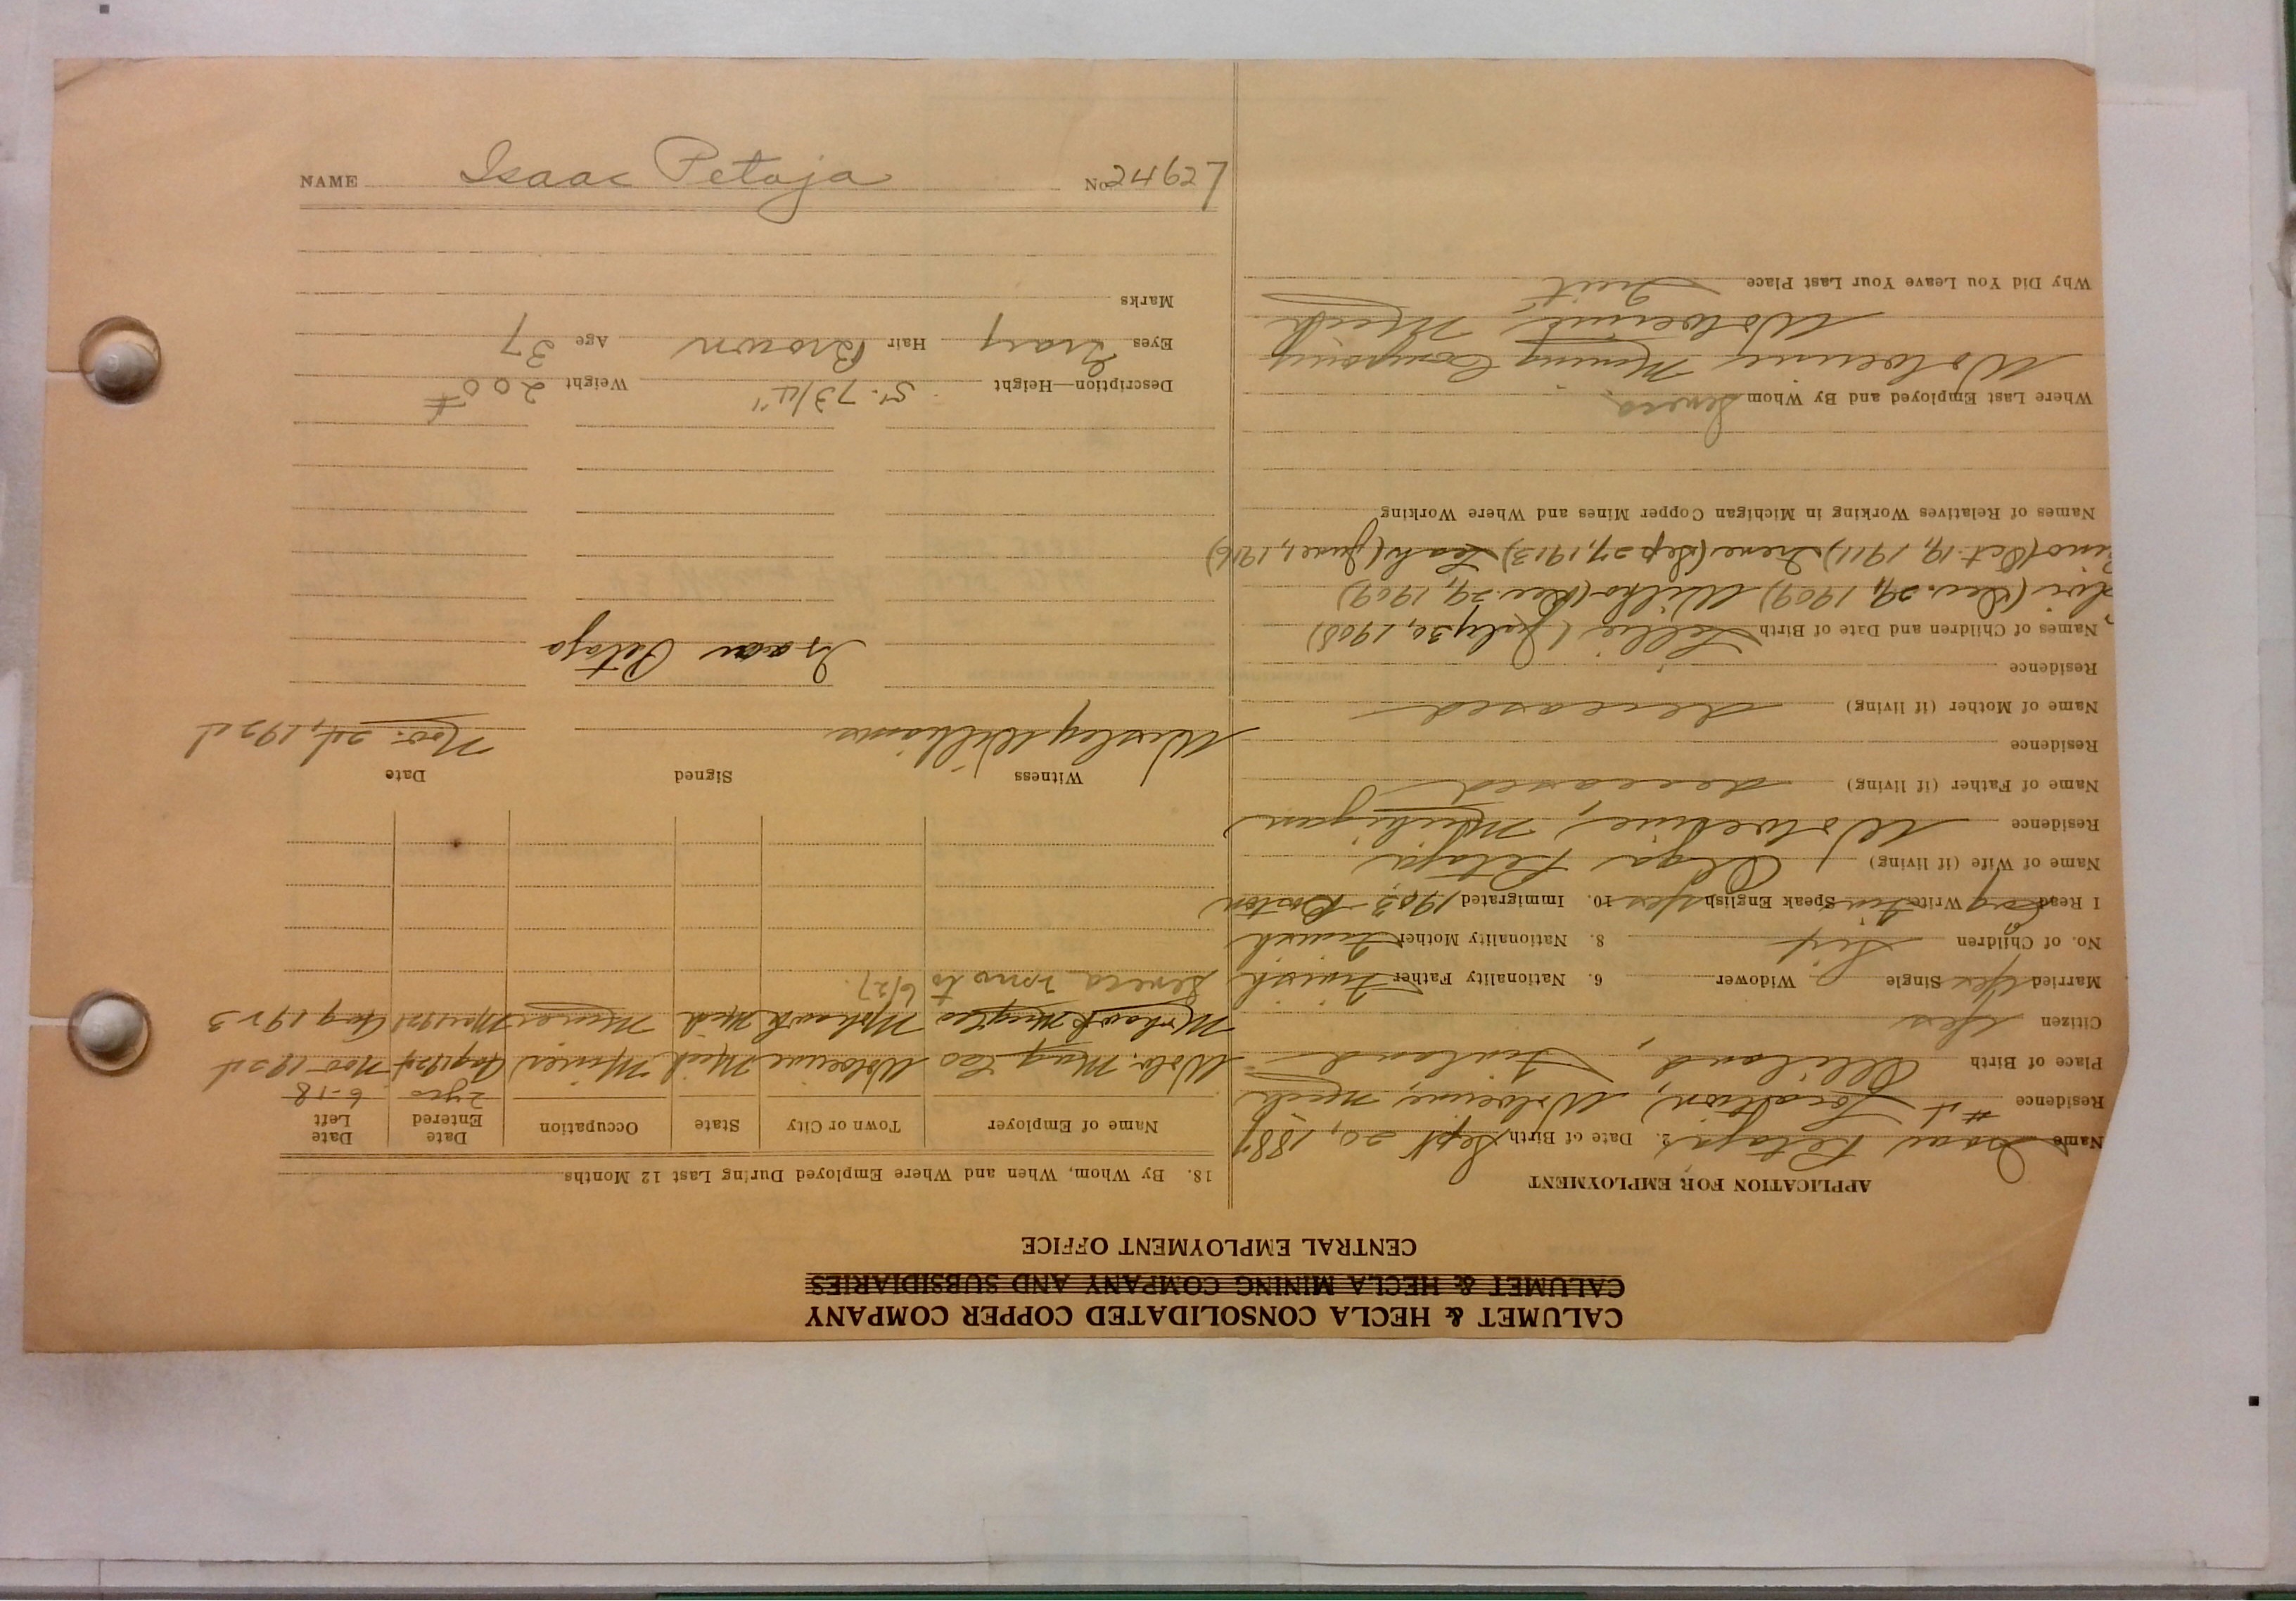 CALUMET & HECLA CONSOLIDATED COPPER COMPANY
CALUMET & HECLA MINING COMPANY AND SUBSIDIARIES
CENTRAL EMPLOYMENT OFFICE
APPLICATION FOR EMPLOYMENT
Name Isaac Petaja 2. Date of Birth Sept 20, 1887
Residence #4 Location, Wolverine, Mich
Place of Birth Finland
Citizen Yes
Married Yes Single Widower 6. Nationality Father Finnish
No. of Children Six 8. Nationality Mother Finnish
I Read Write Fin Speak English Yes 10. Immigrated 1903 Boston
Name of Wife (if living) Olga Petaja
Residence Wolverine, Michigan
Name of Father (if living) deceased
Residence
Name of Mother (if living) deceased
Residence
Names of Children and Date of Birth Lillie (July 30, 1908)
(Dec. 29, 1909) Wilho (Dec. 29, 1909)
(Oct. 19, 1911) Irene (Sep 27, 1913) Leah (June 1, 1916)
Names of Relatives Working in Michigan Copper Mines and Where Working
Where Last Employed and By Whom Seneca
Wolverine Mining Company
Wolverine, Mich
Why Did You Leave Your Last Place Quit
18. By Whom, When and Where Employed During Last 12 Months
Name of Employer Town or City State Occupation Date Entered Date Left
2 yrs 6-18
Wolv. Mng Co Wolverine Mich Miner Aug 1924 Nov 1924
Mohawk Mng Co Mohawk Mich Miner Aug 1923
Seneca 2 mo to 6/27.
Witness Signed Date
Wesley Williams Nov. 24, 1924
Isaac Petaja
Description—Height 5'. 7 3/4" Weight 200#
Eyes Gray Hair Brown Age 37
Marks
NAME Isaac Petaja No 24627